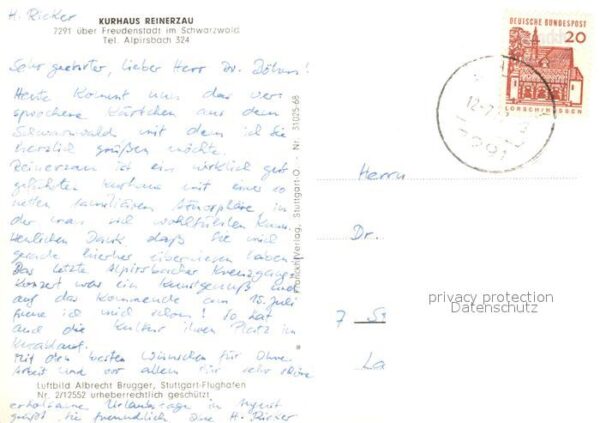 H. Ricker
KURHAUS REINERZAU
7291 über Freudenstadt im Schwarzwald
Tel. Alpirsbach 324
Sehr geehrter, lieber Herr Dr.
Heute kommt nun das ver
sprochene Kärtchen aus dem
Schwarzwald mit dem ich Sie
herzlich grüßen möchte.
Reinerzau ist ein wirklich gut
geführtes Kurhaus mit einer so
netten familiären Atmosphäre in
der man sich wohlfühlen kann.
Herzlichen Dank daß Sie mich
gerade hierher
Das letzte Alpirsbacher Kreuzgang-
Konzert war ein Kunstgenuß und
auf das Kommende am 15. Juli
freue ich mich schon! So hat
auch die Kultur ihren Platz im
Mit den besten Wünschen für Ihre
Arbeit und vor allem für sehr schöne
Luftbild Albrecht Brugger, Stuttgart-Flughafen
Nr. 2/12552 urheberrechtlich geschützt
erholsame Urlaubstage in
grüßt Sie freundlich Ihre H. Ricker
Franckh-Verlag, Stuttgart-O. - Nr. 31025-68
DEUTSCHE BUNDESPOST
20
LORSCH/HESSEN
12.7.
7291
Herrn
Dr.
7 St
La
privacy protection
Datenschutz